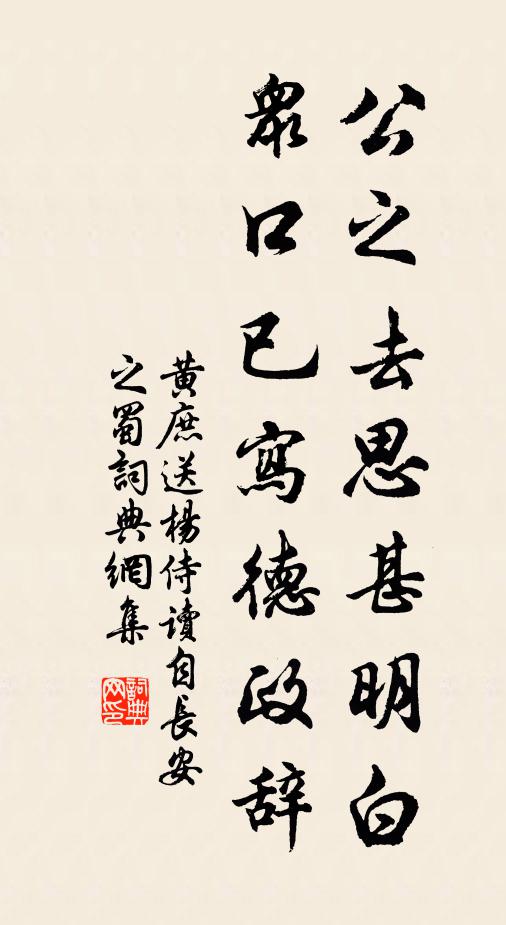 公之去思甚明白
眾口已寫德政辞
黄庶送楊侍讀自長安
之蜀詞典網集
詞典
网印